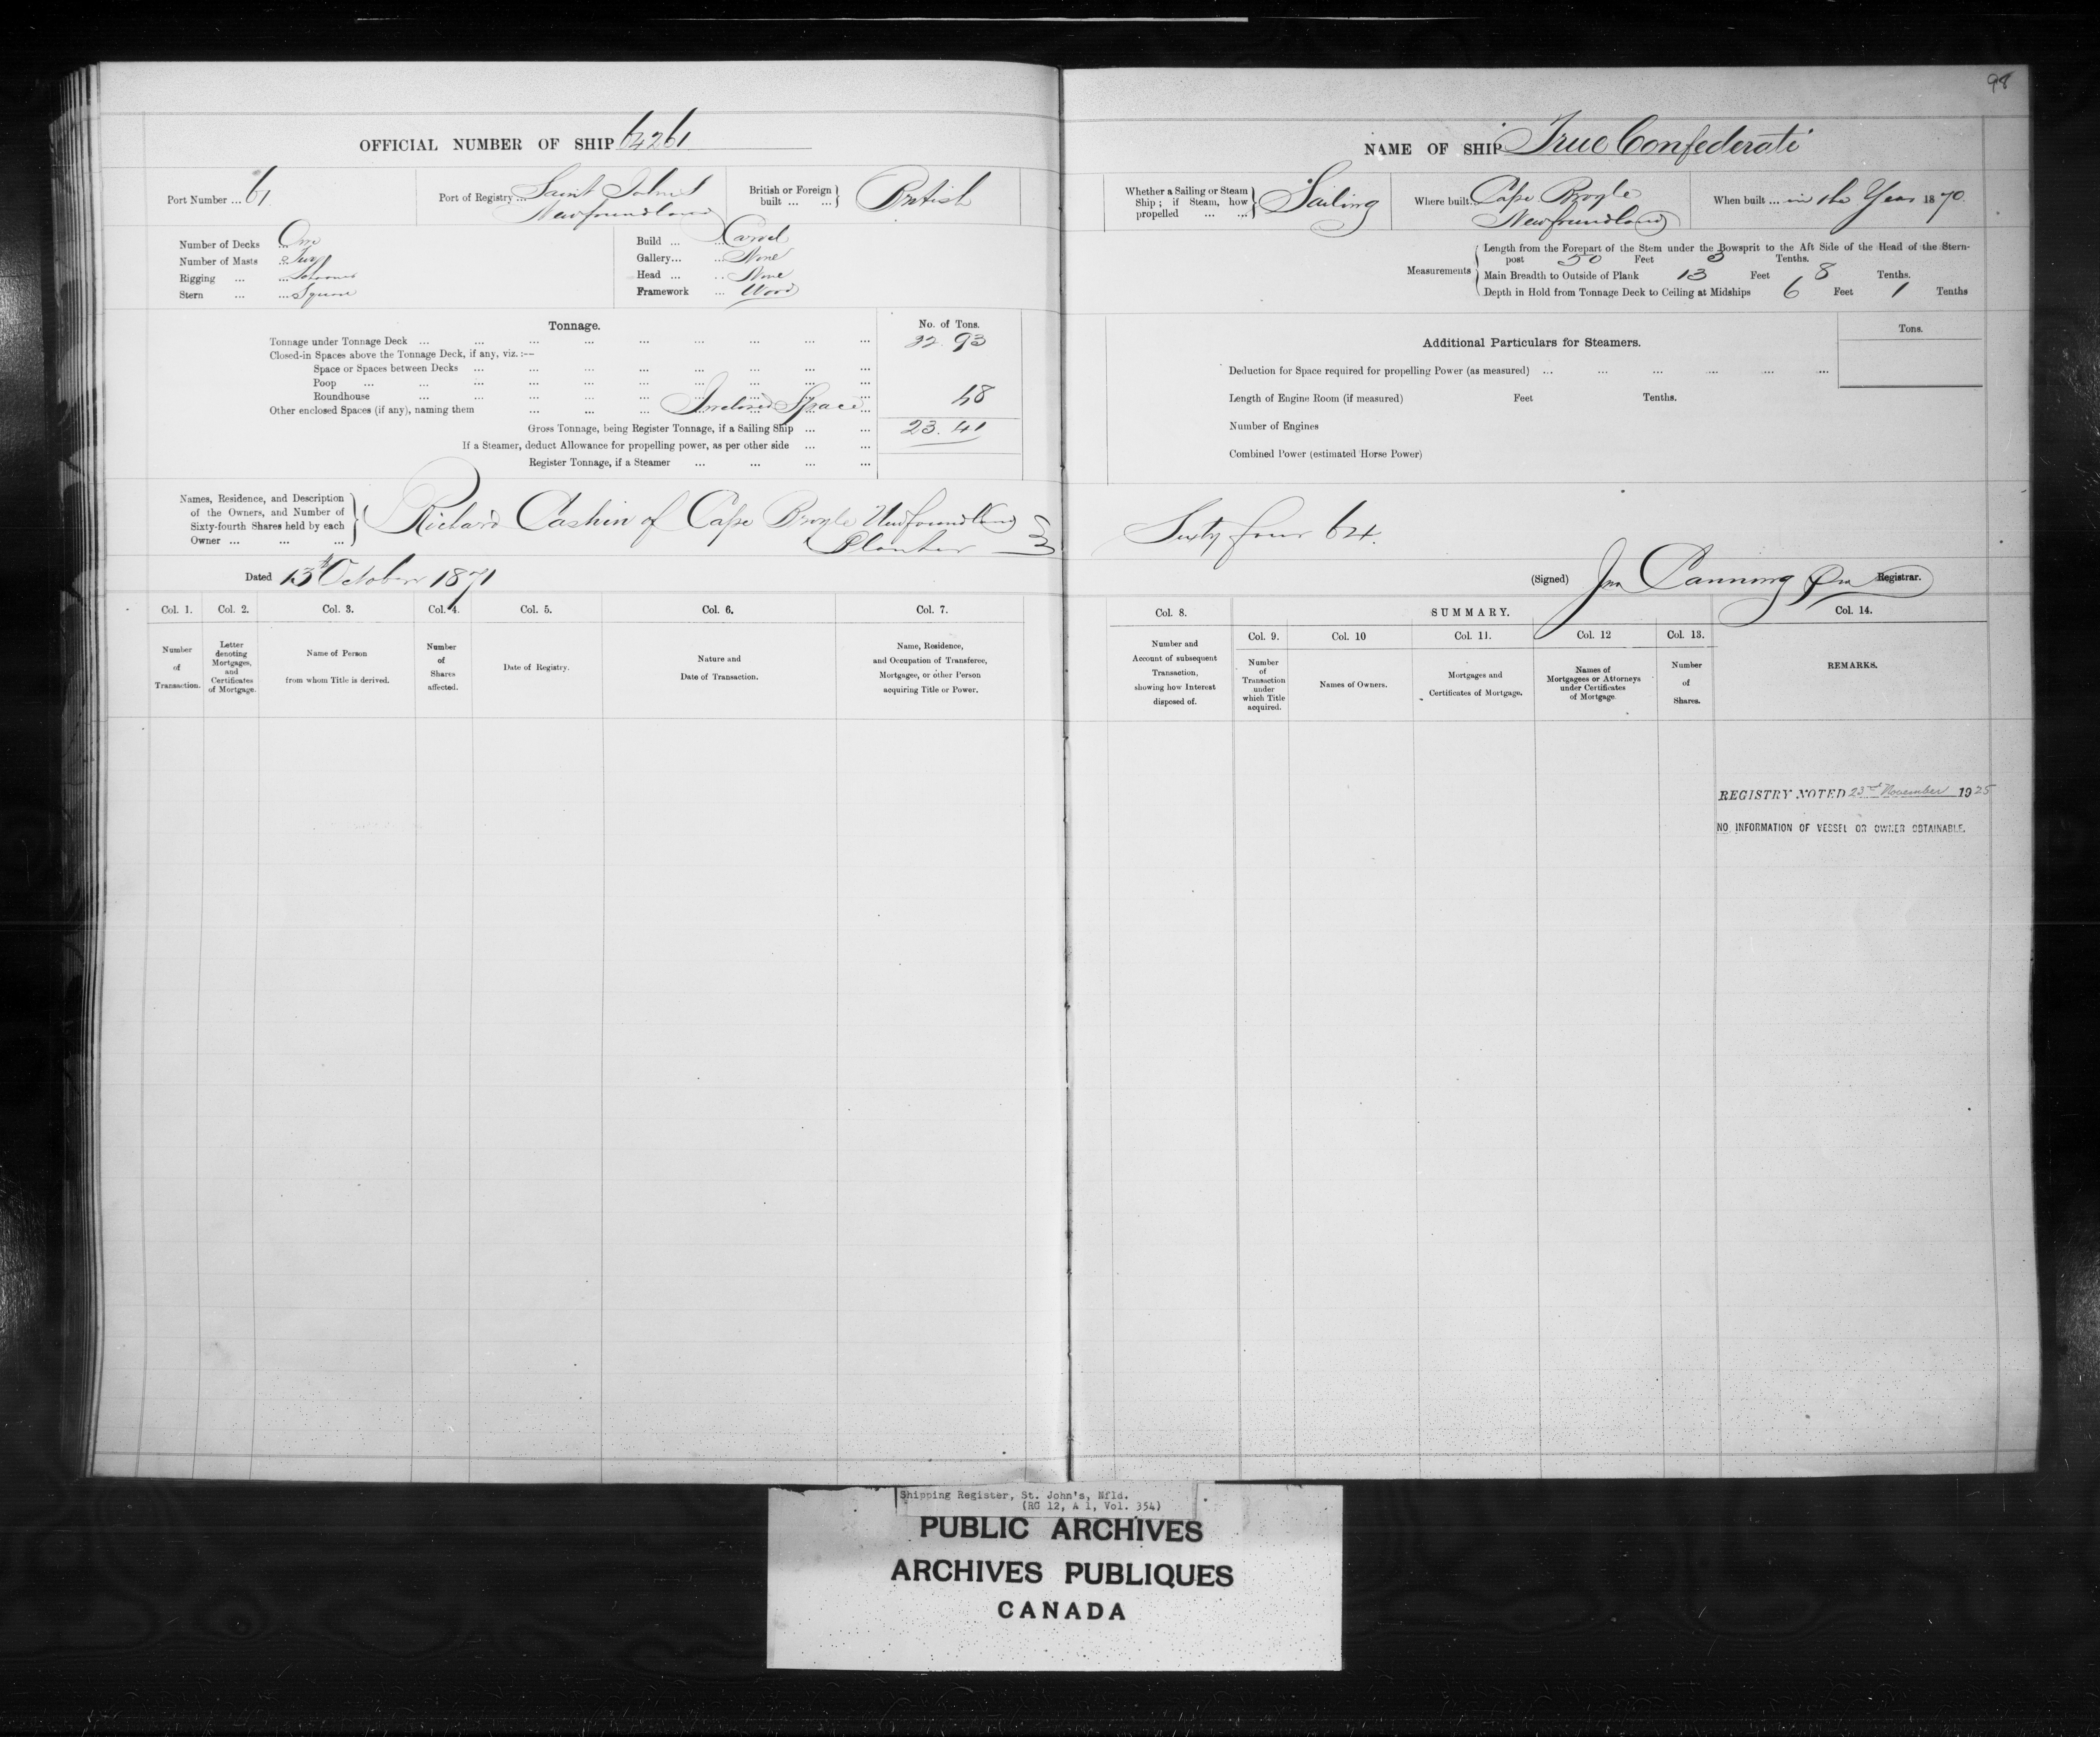 98
OFFICIAL NUMBER OF SHIP 64261
NAME OF SHIP True Confederate
Port Number ... 61
Port of Registry ... Saint Johns Newfoundland
British or Foreign built ... ... } British
Number of Decks ... One
Number of Masts ... Two
Rigging ... ... Schooner
Stern ... ... Square
Build ... ... Carvel
Gallery... ... None
Head ... ... None
Framework ... Wood
Tonnage.
No. of Tons.
Tonnage under Tonnage Deck ... ... ... ... ... ... ... ... ... 22.93
Closed-in Spaces above the Tonnage Deck, if any, viz. :—
Space or Spaces between Decks ... ... ... ... ... ... ... ...
Poop ... ... ... ... ... ... ... ... ... ...
Roundhouse ... ... ... ... ... ... ... ... ...
Other enclosed Spaces (if any), naming them ... ... ... Inclosed Space ... 48
Gross Tonnage, being Register Tonnage, if a Sailing Ship ... ... 23.41
If a Steamer, deduct Allowance for propelling power, as per other side ... ...
Register Tonnage, if a Steamer ... ... ... ...
Names, Residence, and Description
of the Owners, and Number of
Sixty-fourth Shares held by each
Owner ... ... ...
Richard Cashin of Cape Broyle Newfoundland
Planter
Dated 13th October 1871
Col. 1. Col. 2. Col. 3. Col. 4. Col. 5. Col. 6. Col. 7.
Number of Transaction.
Letter denoting Mortgages, and Certificates of Mortgage.
Name of Person from whom Title is derived.
Number of Shares affected.
Date of Registry.
Nature and Date of Transaction.
Name, Residence, and Occupation of Transferee, Mortgagee, or other Person acquiring Title or Power.
Whether a Sailing or Steam Ship ; if Steam, how propelled ... ... } Sailing
Where built Cape Broyle Newfoundland
When built ... in the Year 1870.
Measurements
Length from the Forepart of the Stem under the Bowsprit to the Aft Side of the Head of the Stern-
post 50 Feet 3 Tenths.
Main Breadth to Outside of Plank 13 Feet 8 Tenths.
Depth in Hold from Tonnage Deck to Ceiling at Midships 6 Feet 1 Tenths
Additional Particulars for Steamers.
Tons.
Deduction for Space required for propelling Power (as measured) ... ... ... ... ... ...
Length of Engine Room (if measured) Feet Tenths.
Number of Engines
Combined Power (estimated Horse Power)
Sixty four 64.
(Signed) Jno Canning Registrar.
Col. 8.
SUMMARY.
Col. 14.
Col. 9. Col. 10 Col. 11. Col. 12 Col. 13.
Number and Account of subsequent Transaction, showing how Interest disposed of.
Number of Transaction under which Title acquired.
Names of Owners.
Mortgages and Certificates of Mortgage.
Names of Mortgagees or Attorneys under Certificates of Mortgage.
Number of Shares.
REMARKS.
REGISTRY NOTED 23rd November 1925
NO INFORMATION OF VESSEL OR OWNER OBTAINABLE.
Shipping Register, St. John's, Nfld.
(RG 12, A 1, Vol. 354)
PUBLIC ARCHIVES
ARCHIVES PUBLIQUES
CANADA